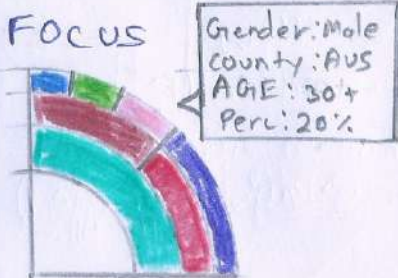 FOCUS
Gender: Male
county: AUS
AGE: 30+
Perc: 20%